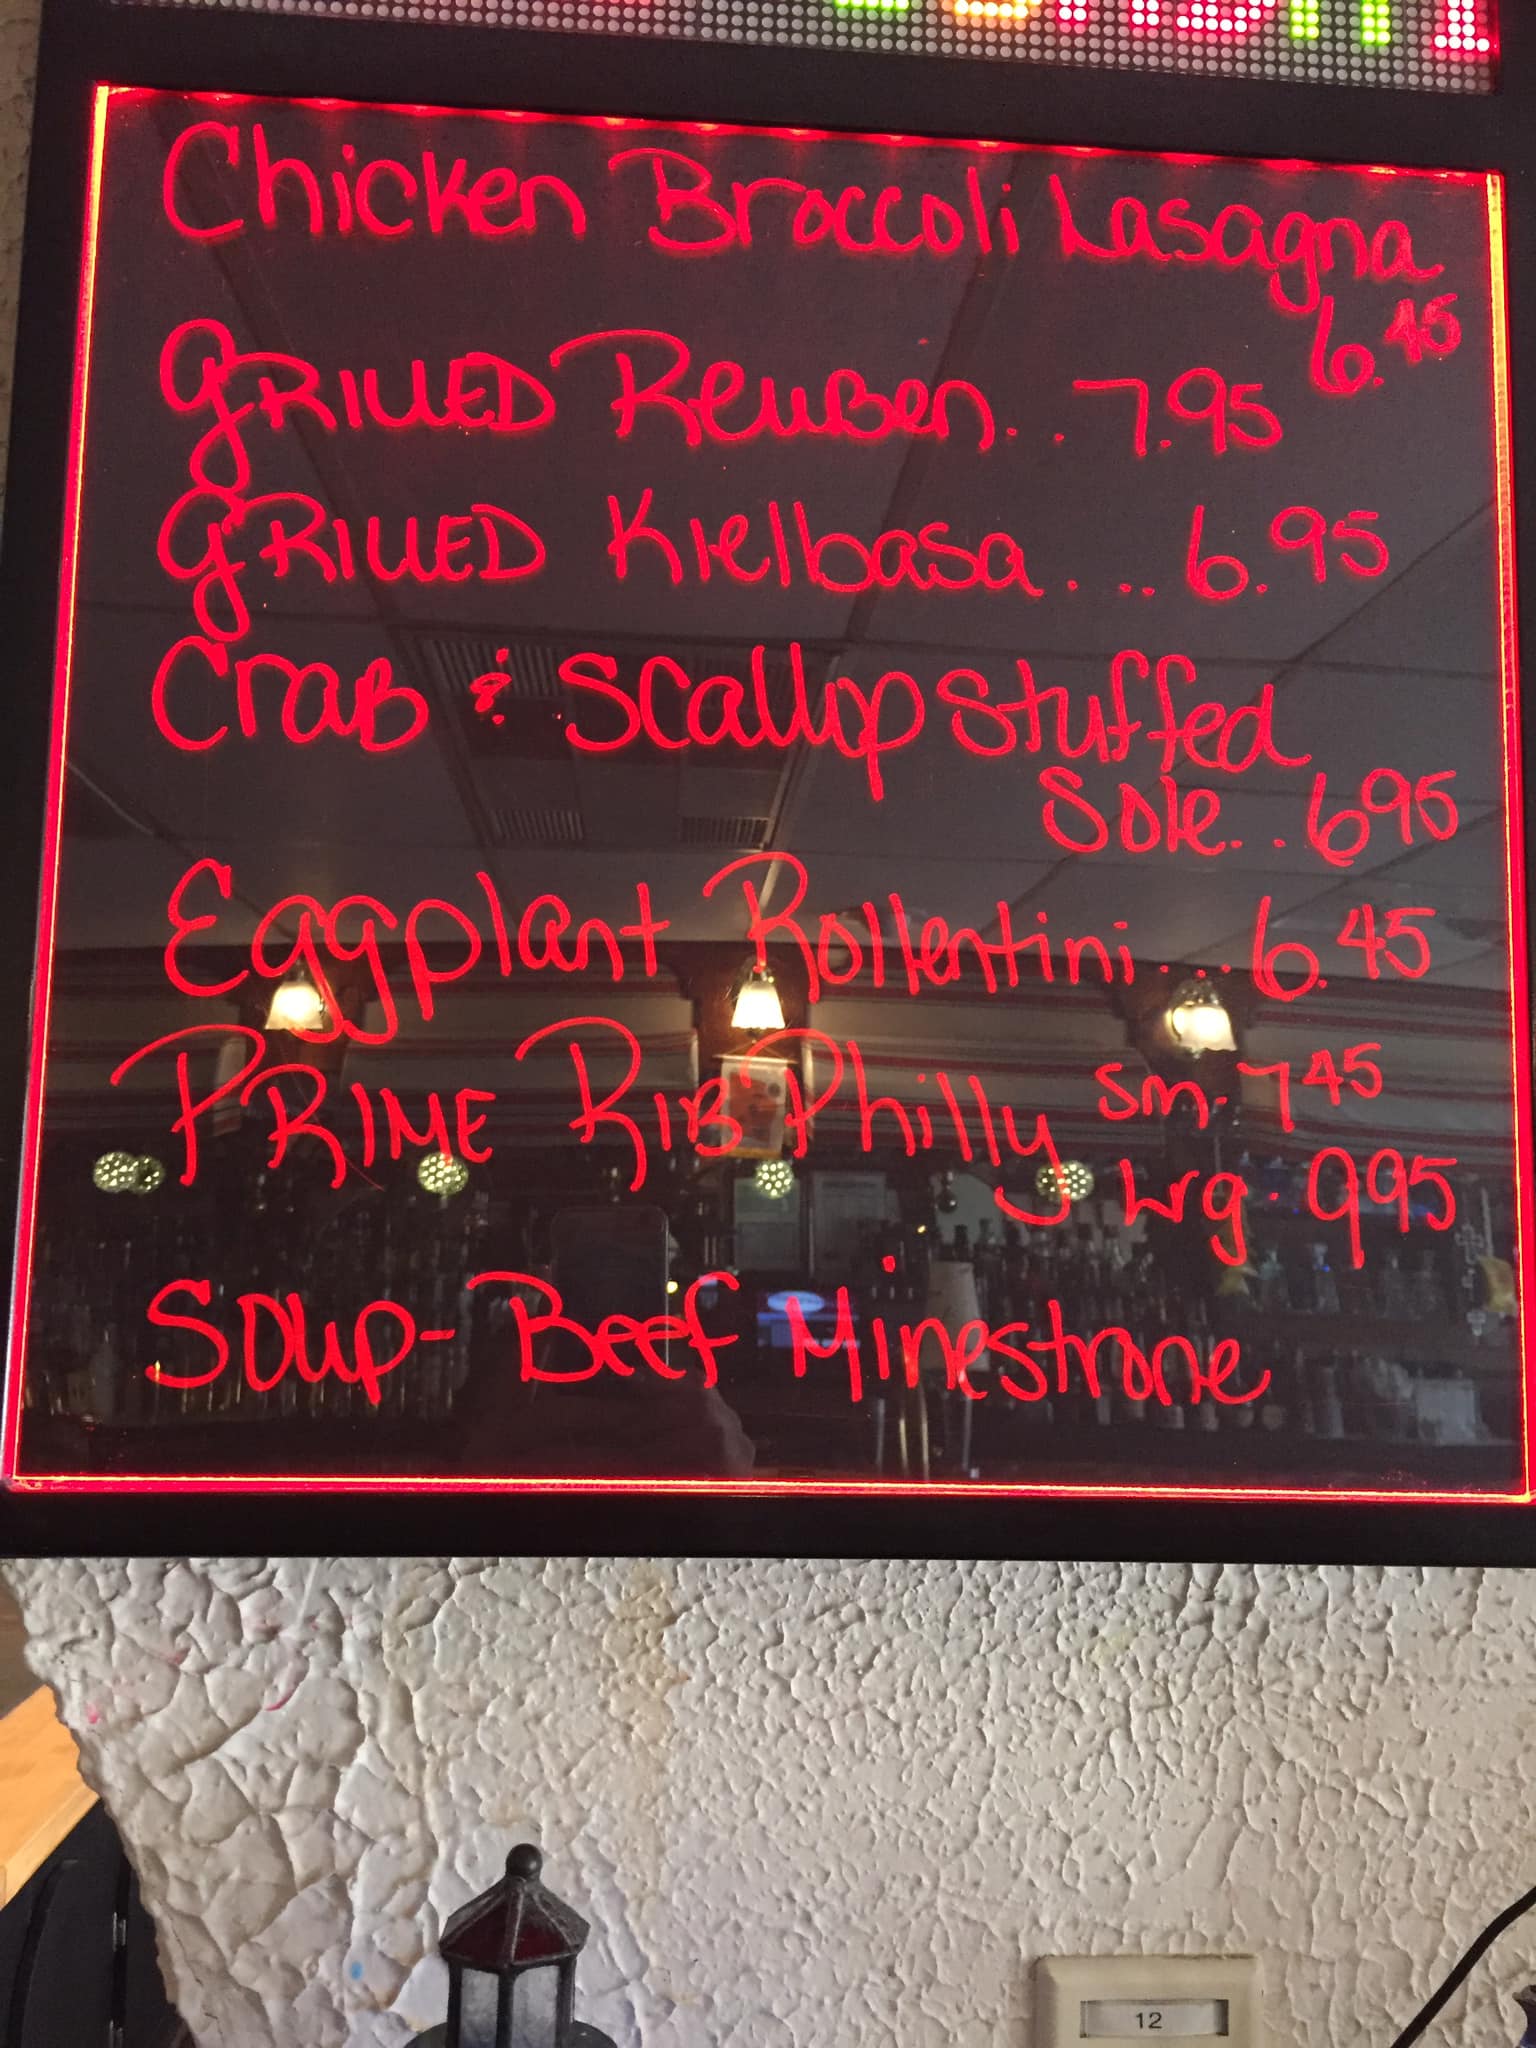 Chicken Broccoli Lasagna
6.45
GRILLED Reuben.. 7.95
GRILLED Kielbasa.... 6.95
Crab & Scallop Stuffed
Sole... 695
Eggplant Rollentini... 6.45
PRIME RIB Philly sm. 745
Lrg. 995
Soup- Beef Minestrone
12